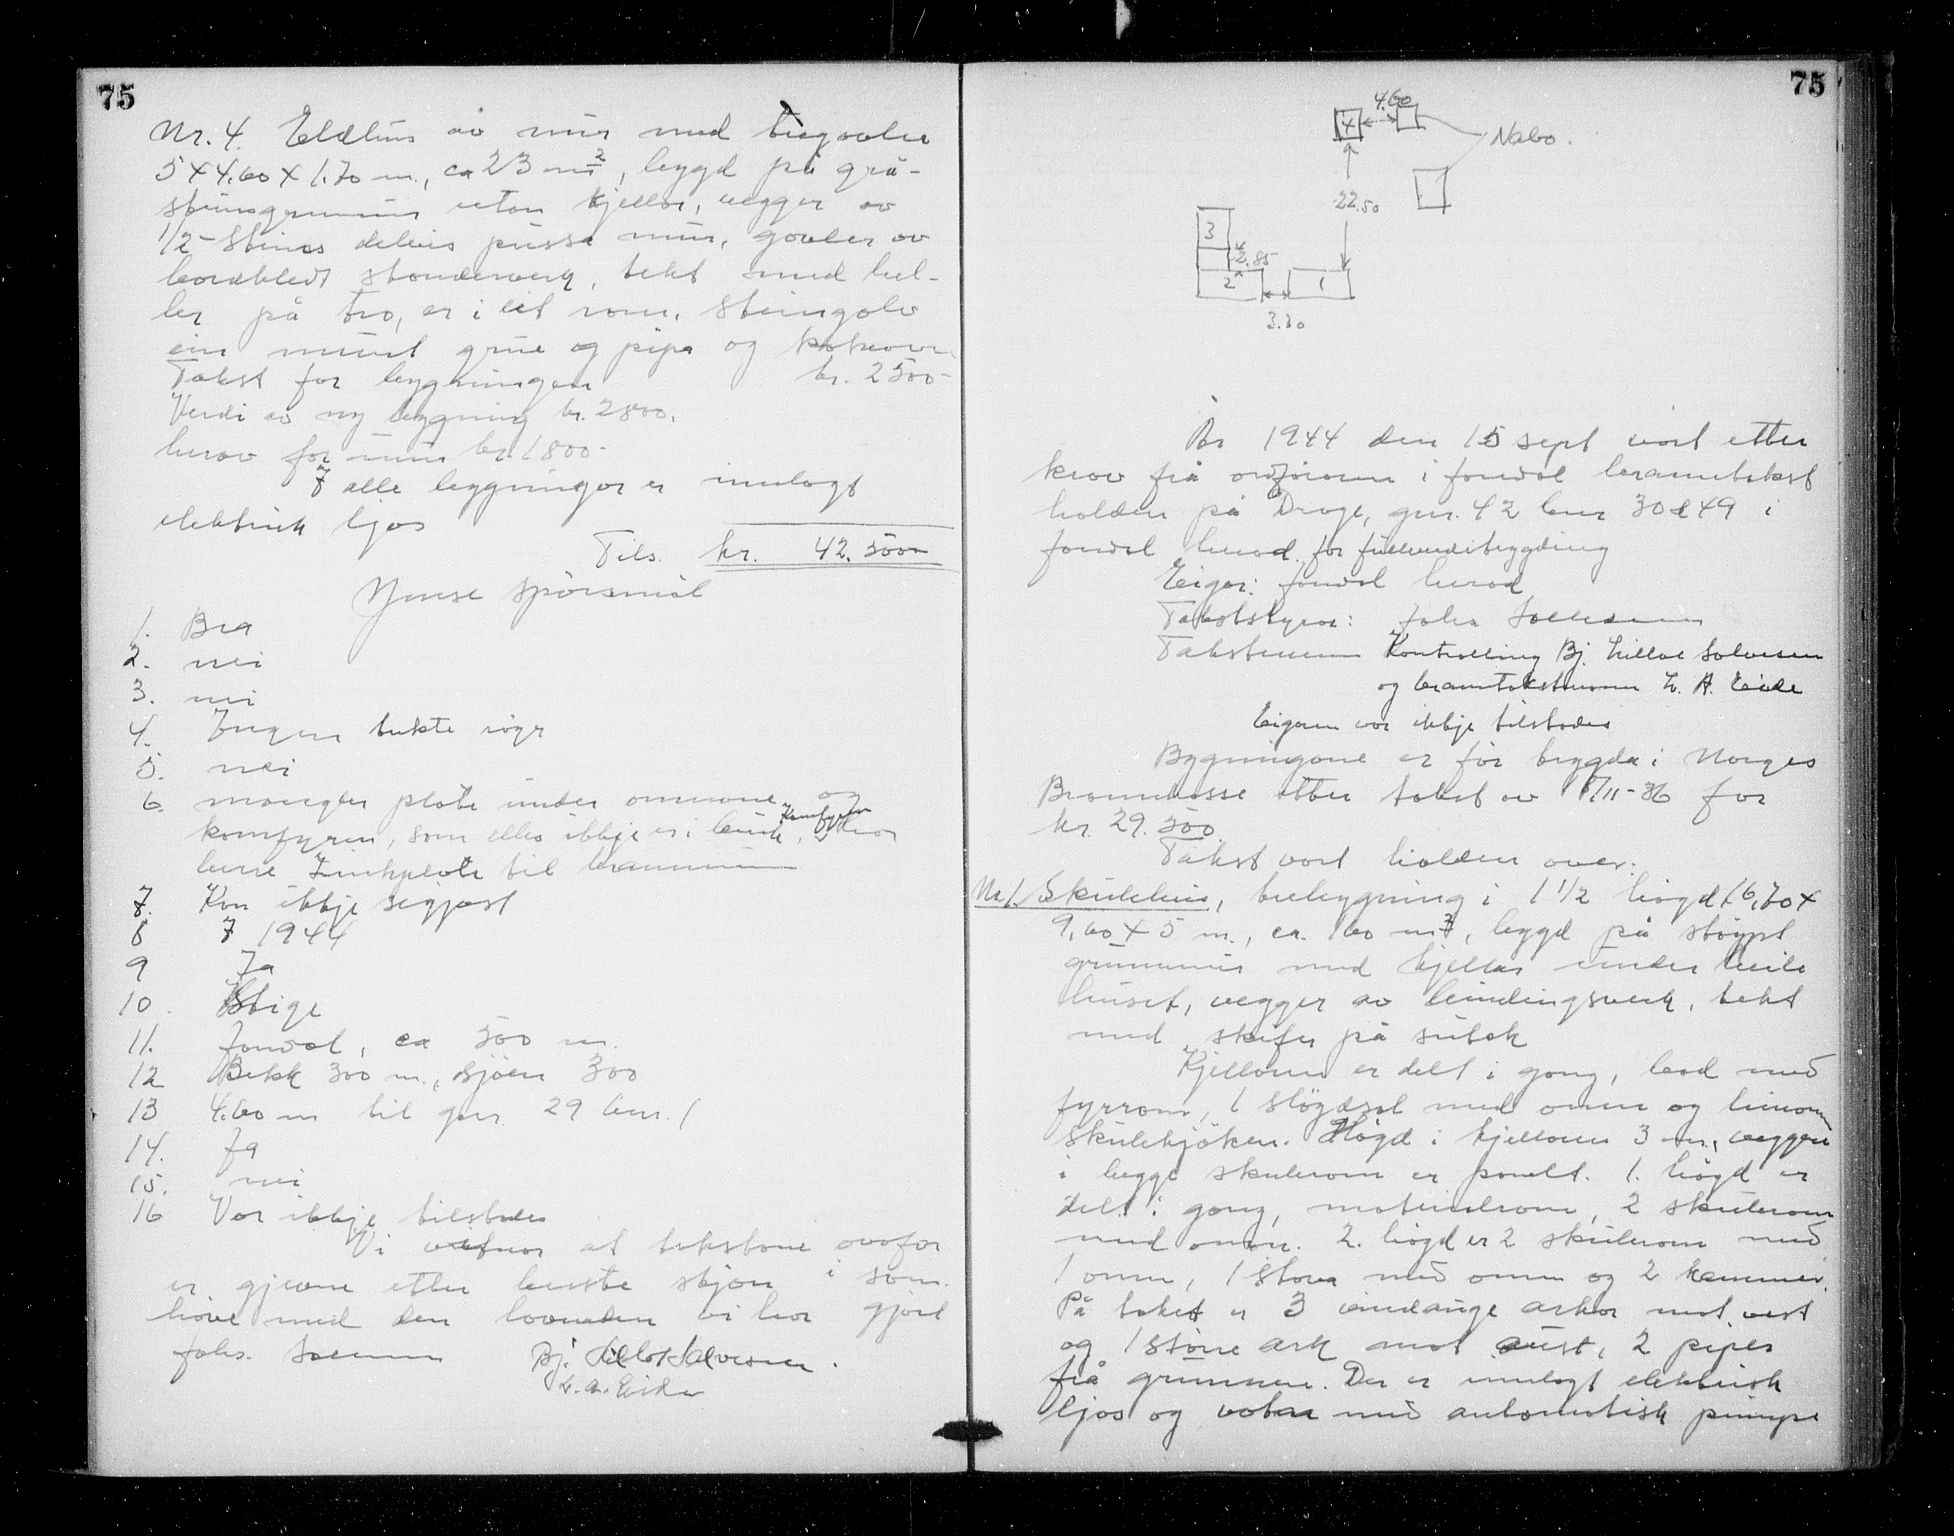 75
Nr. 4. Eldhus av mur med tregavler
5 x 4.60 x 1.70 m., ca 23 m², bygd på grå-
steinsgrunnmur utan kjellar, vegger av
1/2-steins delvis pussa mur, gavler av
bordkledt stenderverk, tekt med hel-
ler på tro, er i eit rom. Steingolv
ein murt grue og pipe og kokeovn.
Takst for bygningen kr. 2500-
Verdi av ny bygning kr. 2800.
herav for mur kr. 1800-
I alle bygningar er innlagt
elektrisk ljos
Tils. kr. 42.500-
Ymse spörsmål
1. Bra
2. nei
3. nei
4. Ingen tekte
5. nei
6 mangler plate under omnane og
komfyren, som elles ikkje er i bruk, komfyren har
berre zinkplate til brannmur
7. Kan ikkje segjast
8 I 1944
9 Ja
10. Stige
11. Jondal, ca 500 m.
12 Bekk 300 m., sjöen 300
13 4.60 m til gnr. 29 bnr. 1
14. Ja
15. nei
16 Var ikkje tilstades
Vi vitnar at takstane ovafor
er gjevne etter beste skjön i sam-
höve med den lovnaden vi har gjort
Johs. Bj. Lillot Salvesen.
L. A. Eide
75
4.60
4
Nabo.
22.50
3
2.85
2
1
3.30
År 1944 den 15 sept vart etter
krav frå ordföraren i Jondal branntakst
halden på Drage, gnr. 42 bnr 30 & 49 i
Jondal herad for fullverditrygding
Eigar: Jondal herad
Takststyrar: Johs
Takstmenn Kontrolling Bj. Lillot Salvesen
og branntakstmann L. A. Eide
Eigaren var ikkje tilstades
Bygningane er för trygda i Norges
Brannkasse etter takst av 17/11-36 for
kr. 29.500
Takst vart halden over:
Nr 1. Skulehus, trebygning i 1 1/2 högd 16,70 x
9,60 x 5 m., ca. 160 m², bygd på stöypt
grunnmur med kjellar under heile
huset, vegger av bindingsverk, tekt
med skifer på sutak
Kjellaren er delt i gang, bad med
fyrrom, 1 slöydsal med omn og
skulekjöken. Högd i kjellaren 3 m., veggene
i begge skulerom er panelt. 1. högd er
delt i gang, materialrom, 2 skulerom
med omn. 2. högd er 2 skulerom med
1 omn, 1 stova med omn og 2 kammer.
På taket er 3 vindauge arkar mot vest
og 1 större ark mot aust, 2 piper
frå grunnen. Der er innlagt elektrisk
ljos og vatn med automatisk pumpe